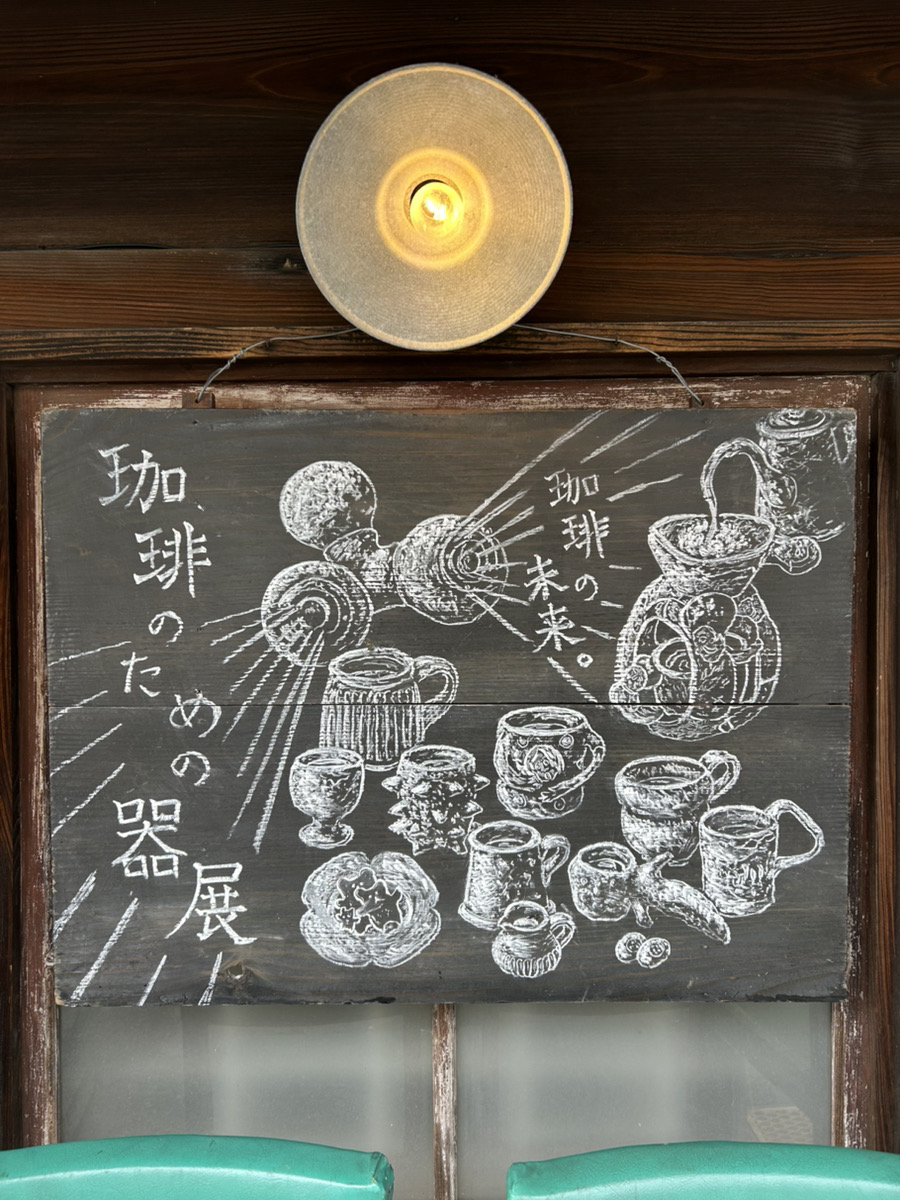 珈琲のための
器展
珈琲の
未来。